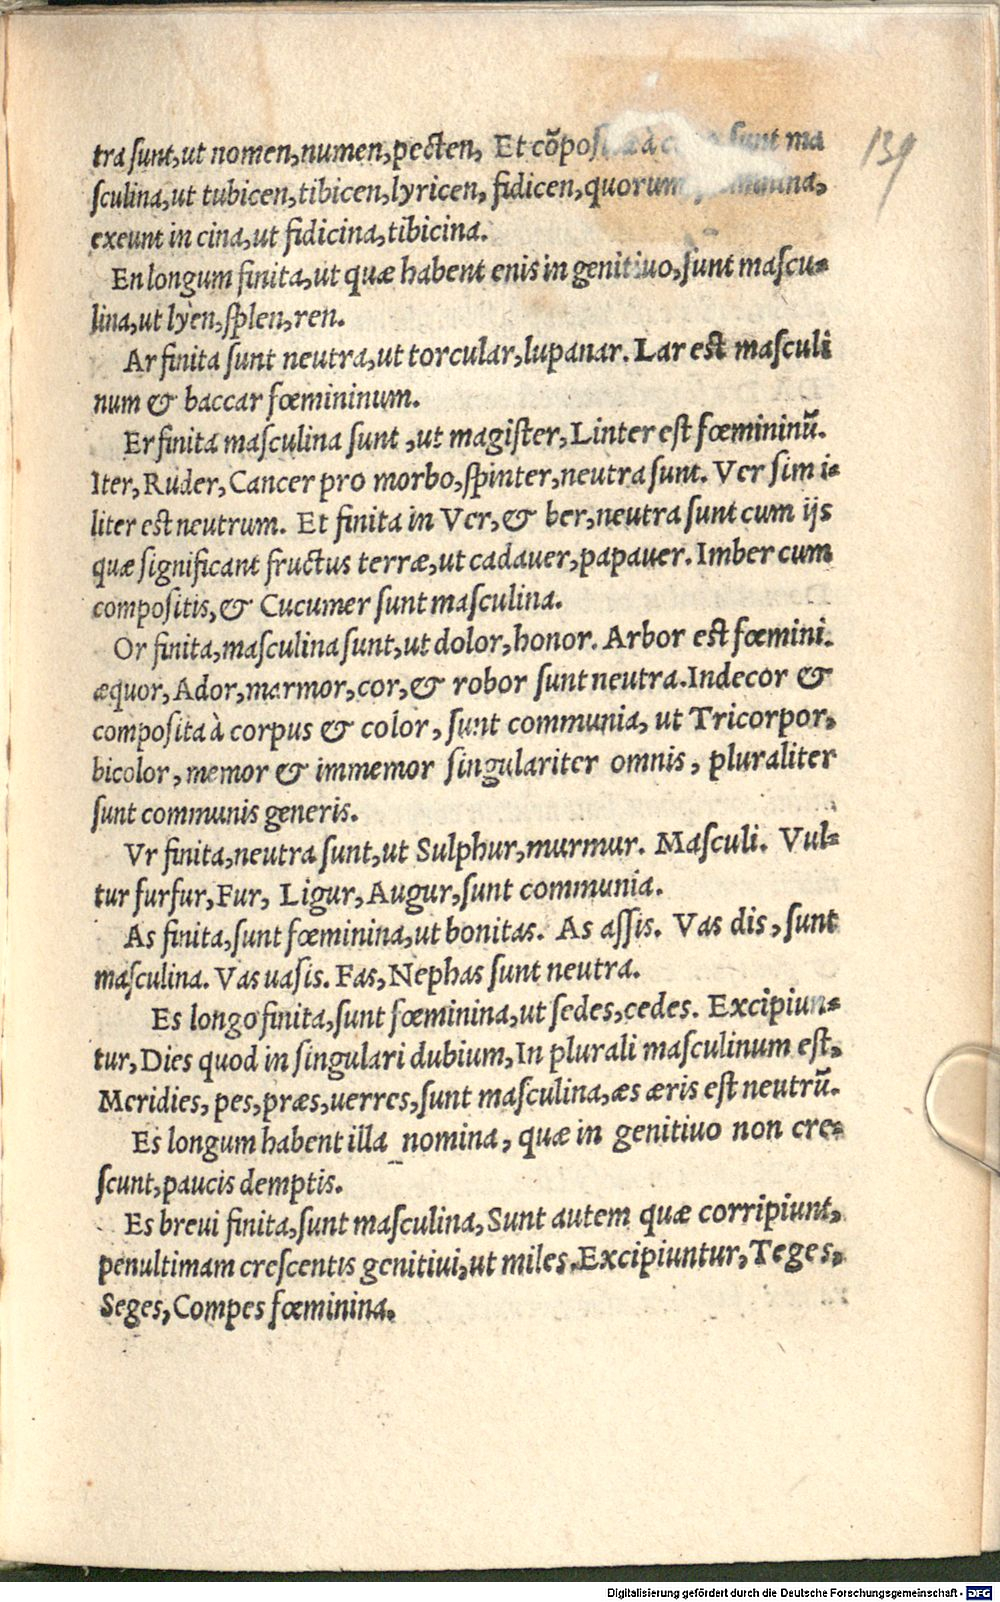 tra sunt, ut nomen, numen, pecten, Et cõpos à sunt ma
sculina, ut tubicen, tibicen, lyricen, fidicen, quorum
exeunt in cina, ut fidicina, tibicina.
En longum finita, ut quæ habent enis in genitiuo, sunt mascu-
lina, ut lyen, splen, ren.
Ar finita sunt neutra, ut torcular, lupanar. Lar est masculi
num & baccar fœmininum.
Er finita masculina sunt, ut magister, Linter est fœmininũ.
Iter, Ruder, Cancer pro morbo, spinter, neutra sunt. Ver simi-
liter est neutrum. Et finita in Ver, & ber, neutra sunt cum ijs
quæ significant fructus terræ, ut cadauer, papauer. Imber cum
compositis, & Cucumer sunt masculina.
Or finita, masculina sunt, ut dolor, honor. Arbor est fœmini.
æquor, Ador, marmor, cor, & robor sunt neutra. Indecor &
composita à corpus & color, sunt communia, ut Tricorpor,
bicolor, memor & immemor singulariter omnis, pluraliter
sunt communis generis.
Vr finita, neutra sunt, ut Sulphur, murmur. Masculi. Vul-
tur furfur, Fur, Ligur, Augur, sunt communia.
As finita, sunt fœminina, ut bonitas. As assis. Vas dis, sunt
masculina. Vas uasis. Fas, Nephas sunt neutra.
Es longo finita, sunt fœminina, ut sedes, cedes. Excipiun-
tur, Dies quod in singulari dubium, In plurali masculinum est,
Meridies, pes, præs, uerres, sunt masculina, æs æris est neutrũ.
Es longum habent illa nomina, quæ in genitiuo non cre-
scunt, paucis demptis.
Es breui finita, sunt masculina, Sunt autem quæ corripiunt,
penultimam crescentis genitiui, ut miles. Excipiuntur, Teges,
Seges, Compes fœminina.
139
Digitalisierung gefördert durch die Deutsche Forschungsgemeinschaft - DFG